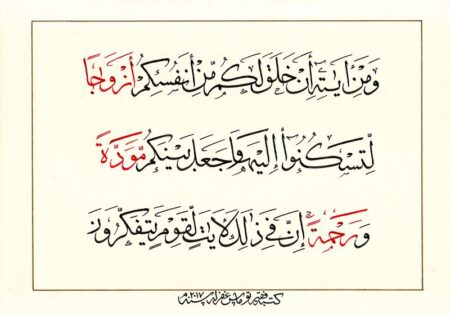 وَمِنْ ءَايَٰتِهِۦٓ أَنْ خَلَقَ لَكُم مِّنْ أَنفُسِكُمْ أَزْوَٰجًا
لِّتَسْكُنُوٓا۟ إِلَيْهَا وَجَعَلَ بَيْنَكُم مَّوَدَّةً
وَرَحْمَةً ۚ إِنَّ فِى ذَٰلِكَ لَءَايَٰتٍ لِّقَوْمٍ يَتَفَكَّرُونَ
كتبه فقير